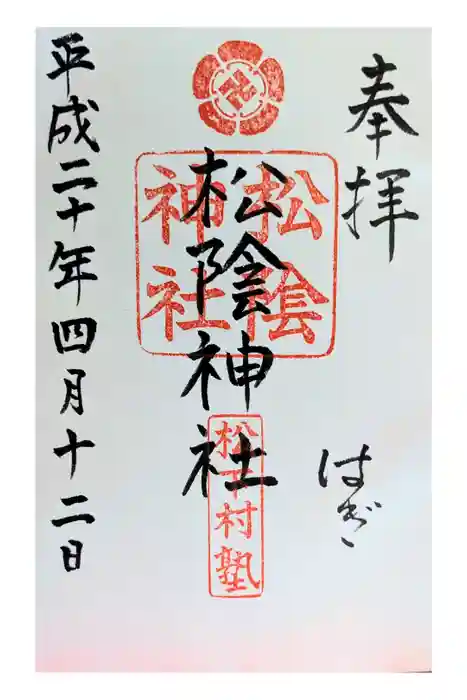 奉拝
はぎ
松陰神社
松陰
神社
松下村塾
平成二十年四月十二日